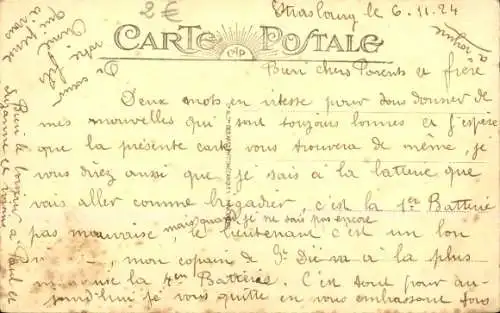 2€
Strasbourg le 6.11.24
CARTE POSTALE
Bien chers Parents et frère
Deux mots en vitesse pour vous donner de
mes nouvelles qui sont toujours bonnes et j'espère
que la présente carte vous trouvera de même, je
vous direz aussi que je sais à la batterie que
vais aller comme brigadier, c'est la 1er Batterie
mais quand je ne sais pas encore
pas mauvaise, le lieutenant c'est un bon
mon copain de St Dié va à la plus
la 4em Batterie. C'est tout pour au-
jourd'hui je vous quitte en vous embrassant tous
votre fils
qui pense
à vous
Bien le bonjour à Paul et
Suzanne et